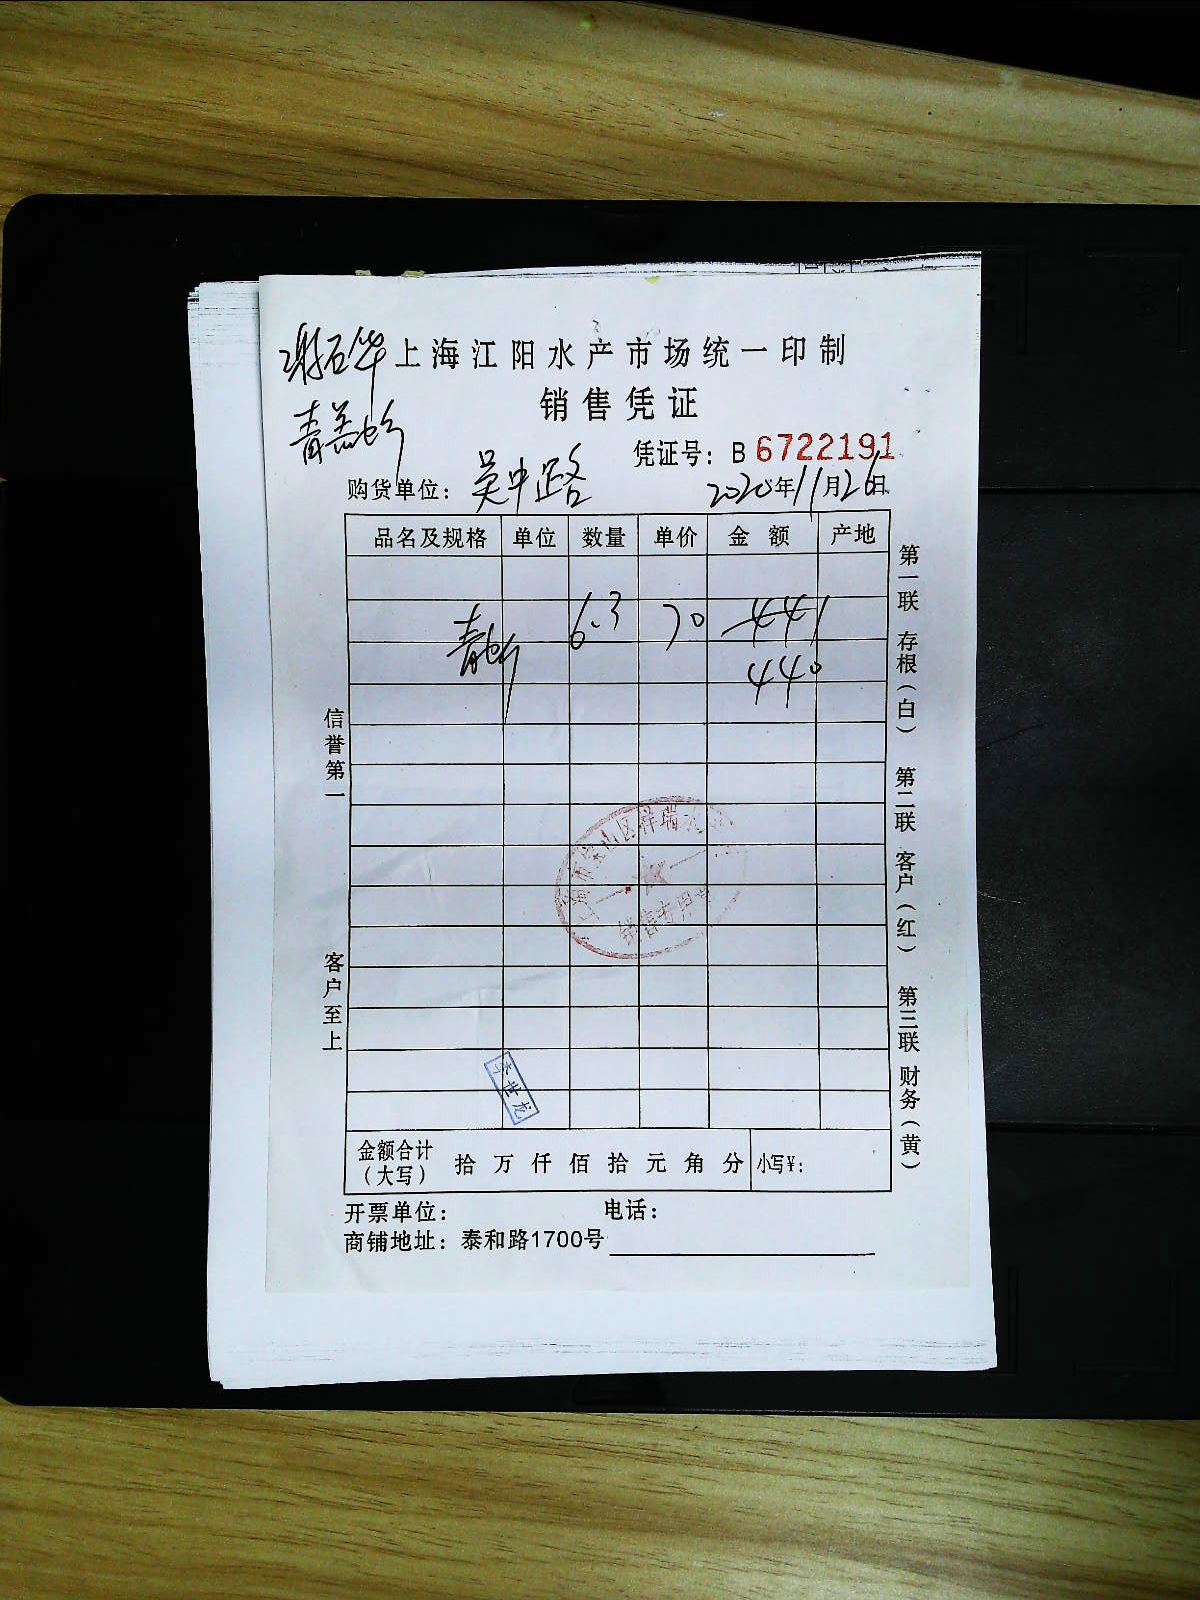 上海江阳水产市场统一印制
销售凭证
凭证号：B 6722191
购货单位：吴中路 2020年11月26日
品名及规格 单位 数量 单价 金 额 产地
6.3 70 441
440
信誉第一
客户至上
第一联 存根（白） 第二联 客户（红） 第三联 财务（黄）
销售专用章
李世龙
金额合计（大写） 拾 万 仟 佰 拾 元 角 分 小写¥：
开票单位： 电话：
商铺地址：泰和路1700号